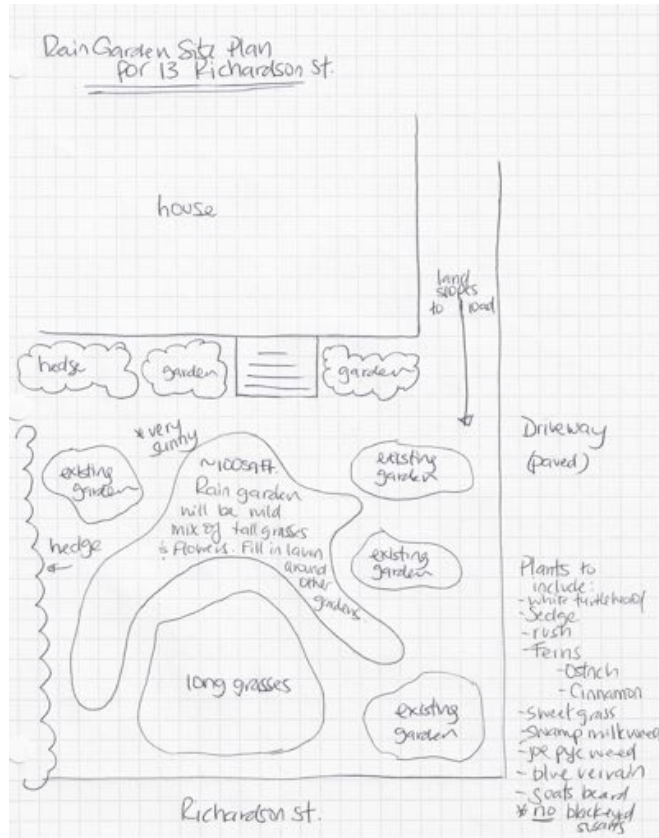 Rain Garden Site Plan
for 13 Richardson St.
house
land
slopes
to road
hedge
garden
garden
* very
sunny
existing
garden
~100 sq ft.
Rain garden
will be mild
mix of tall grasses
& flowers. Fill in lawn
around
other
gardens
existing
garden
Driveway
(paved)
hedge
existing
garden
long grasses
existing
garden
Plants to
include:
- white turtlehead
- Sedge
- rush
- Ferns
- Ostrich
- Cinnamon
- Sweet grass
- Swamp milkweed
- joe pye weed
- blue vervain
- goats beard
* no blackeyed
susans
Richardson St.